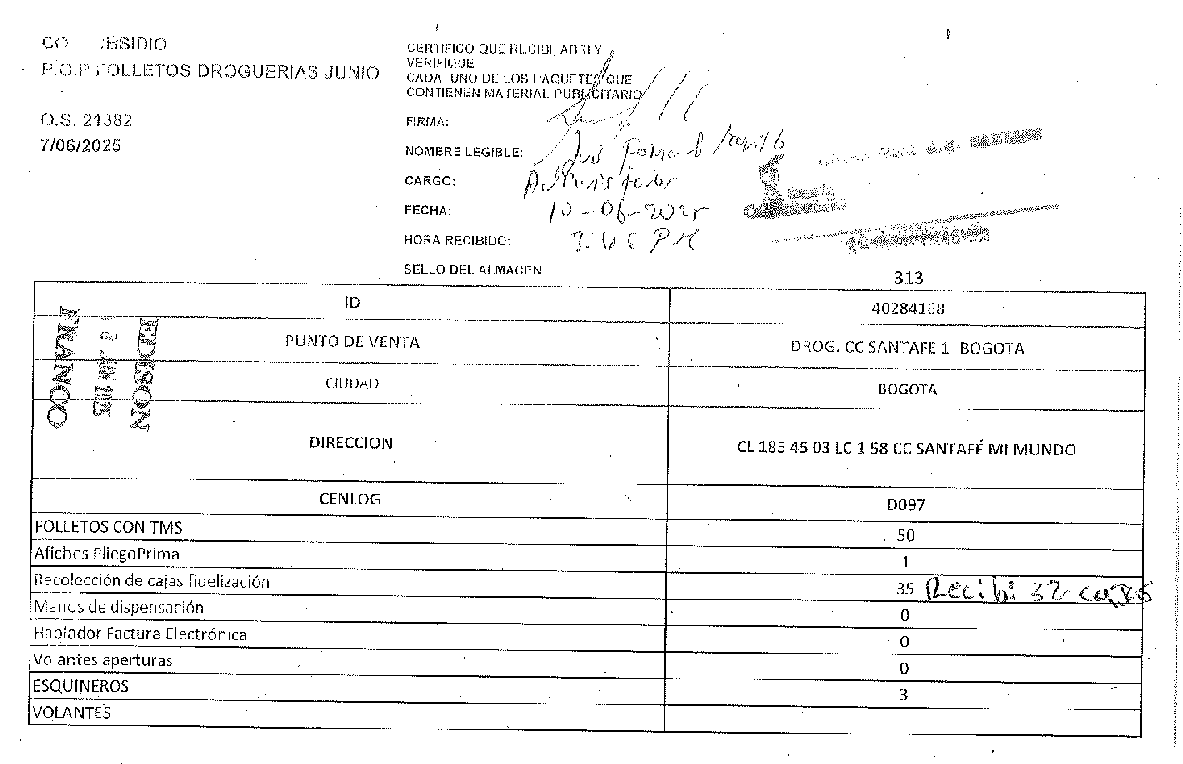 P.O.P FOLLETOS DROGUERIAS JUNIO
O.S. 21382
7/06/2025
CERTIFICO QUE RECIBI, ABRI Y
VERIFIQUE
CADA UNO DE LOS PAQUETES QUE
CONTIENEN MATERIAL PUBLICITARIO
FIRMA:
NOMBRE LEGIBLE:
CARGO:
FECHA: 10-06-2025
HORA RECIBIDO: PM
SELLO DEL ALMACEN
313
ID 40284138
PUNTO DE VENTA DROG. CC SANTAFE 1 BOGOTA
CIUDAD BOGOTA
DIRECCION CL 185 45 03 LC 1 58 CC SANTAFÉ MI MUNDO
CENLOG D097
FOLLETOS CON TMS 50
Afiches PliegoPrima 1
Recolección de cajas fidelización 35 Recibi 32 cajas
Menús de dispensación 0
Hablador Factura Electrónica 0
Volantes aperturas 0
ESQUINEROS 3
VOLANTES
EDISON
FRANCO